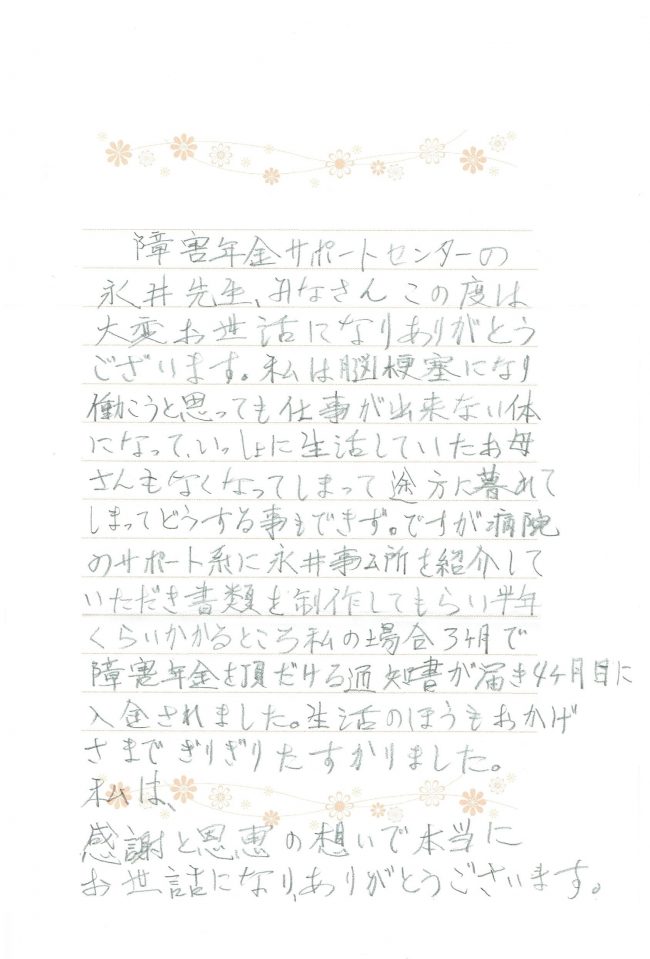 障害年金サポートセンターの
永井先生、みなさんこの度は
大変お世話になりありがとう
ございます。私は脳梗塞になり
働こうと思っても仕事が出来ない体
になって、いっしょに生活していたお母
さんもなくなってしまって途方に暮れて
しまってどうする事もできず。ですが病院
のサポート系に永井事ム所を紹介して
いただき書類を制作してもらい半年
くらいかかるところ私の場合3ヶ月で
障害年金を頂だける通知書が届き4ヶ月目に
入金されました。生活のほうもおかげ
さまでぎりぎりたすかりました。
私は、
感謝と恩恵の想いで本当に
お世話になり、ありがとうございます。